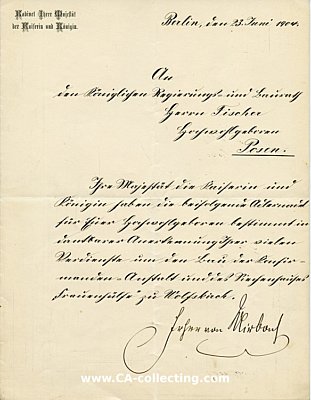 Kabinet Ihrer Majestät
der Kaiserin und Königin.
Berlin, den 23. Juni 1904.
An
den Königlichen Regierungs- und Baurath
Herrn Fischer
Hochwohlgeboren
Posen.
Ihre Majestät die Kaiserin und
Königin haben die beifolgende
für Euer Hochwohlgeboren bestimmt in
dankbarer Anerkennung Ihrer vielen
Verdienste um den Bau der Konfir-
manden-Anstalt und des Siechenhauses
Frauenhülfe zu Wolfskirch.
Frhr von Mirbach
www.CA-collecting.com